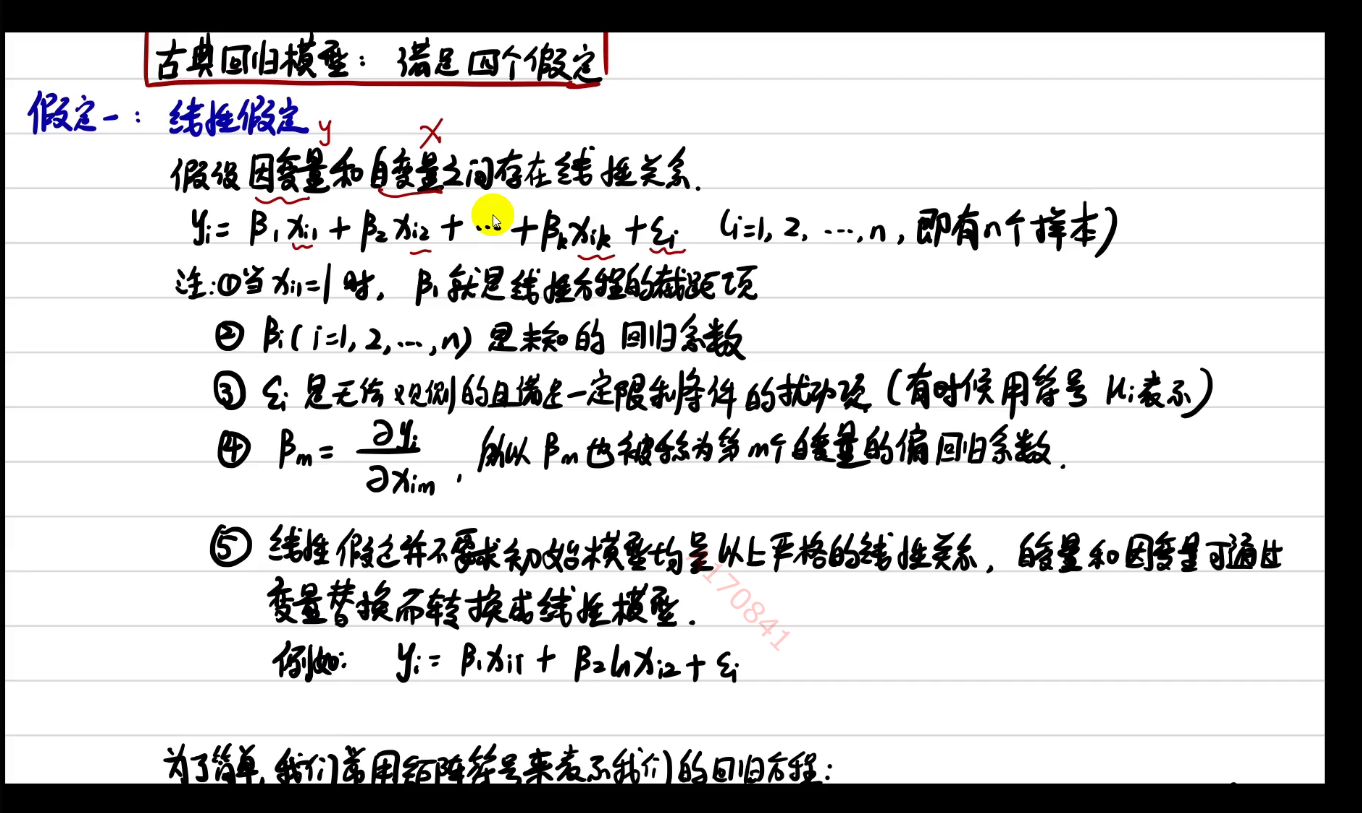 古典回归模型：满足四个假定
假定一：线性假定
y x
假设因变量和自变量之间存在线性关系.
yi = β1xi1 + β2xi2 + … + βkxik + εi (i=1, 2, …, n, 即有n个样本)
注:①当xi1=1时, β1就是线性方程的截距项
② βi(i=1, 2, …, n) 是未知的回归系数
③ εi 是无法观测的且满足一定限制条件的扰动项 (有时候用符号 μi表示)
④ βm = ∂yi/∂xim, 所以 βm也被称为第m个自变量的偏回归系数.
⑤ 线性假定并不要求初始模型均呈以上严格的线性关系, 自变量和因变量可通过
变量替换而转换成线性模型.
例如: yi = β1xi1 + β2lnxi2 + εi
170841
为了简单, 我们常用矩阵符号来表示我们的回归方程: